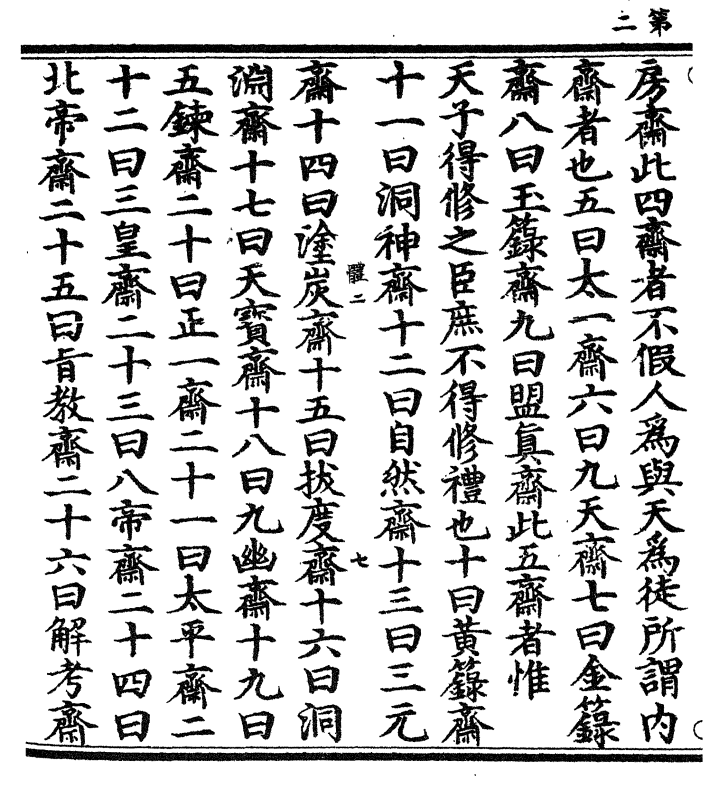 第二
房齋此四齋者不假人爲與天爲徒所謂内
齋者也五曰太一齋六曰九天齋七曰金籙
齋八曰玉籙齋九曰盟眞齋此五齋者惟
天子得修之臣庶不得修禮也十曰黄籙齋
十一曰洞神齋十二曰自然齋十三曰三元
體二 七
齋十四曰塗炭齋十五曰拔度齋十六曰洞
淵齋十七曰天寶齋十八曰九幽齋十九曰
五鍊齋二十曰正一齋二十一曰太平齋二
十二曰三皇齋二十三曰八帝齋二十四曰
北帝齋二十五曰旨教齋二十六曰解考齋